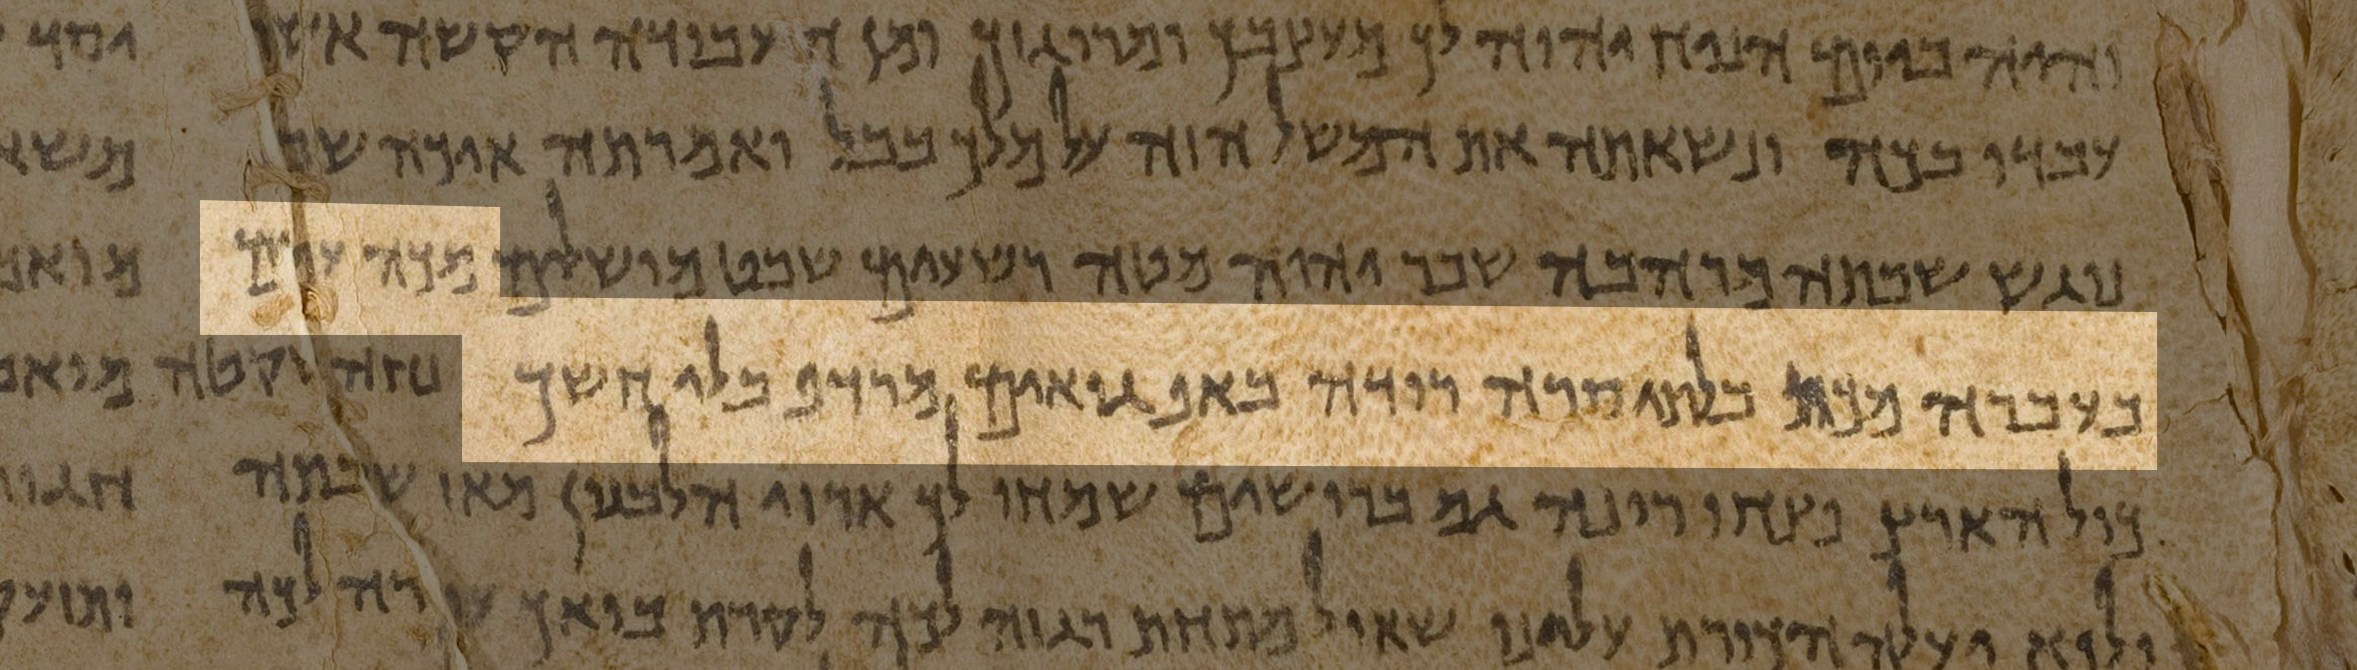 והיה ביום הניח יהוה לך מעצבך ומרוגזך ומן ה עבודה הקשה
עבדו בכה ונשאתה את המשל הזה על מלך בבל ואמרתה איכה שבת
נוגש שבתה מרהבה שבר יהוה מטה רשעים שבט מושלים מכה עמים
בעברה מכת בלתי סרה רודה באף גואים מרדף בלי חשך נחה שקטה
כול הארץ פצחו רינה גם ברושים שמחו לך ארזי הלבנון מאז שכבתה
ולוא יעלה הכורת עלינו שאול מתחת רגזה לכה לקרת בואך עוררה לכה